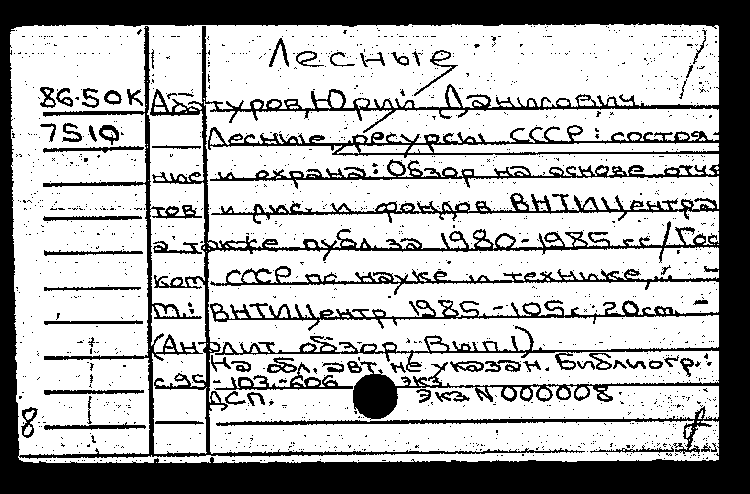 Лесные
86-50К Абатуров, Юрий Данилович.
7510 Лесные ресурсы СССР: состоя-
ние и охрана: Обзор на основе отче
тов и дис. и фондов ВНТИЦентра
а также публ. за 1980-1985 гг / Гос
ком. СССР по науке и технике, -
М.: ВНТИЦентр, 1985. - 105 с.; 20 см. -
(Аналит. обзор; Вып. 1).
На обл. авт. не указан. Библиогр.:
с. 95 - 103. - 606 экз.
ДСП. Экз N 000008.
8